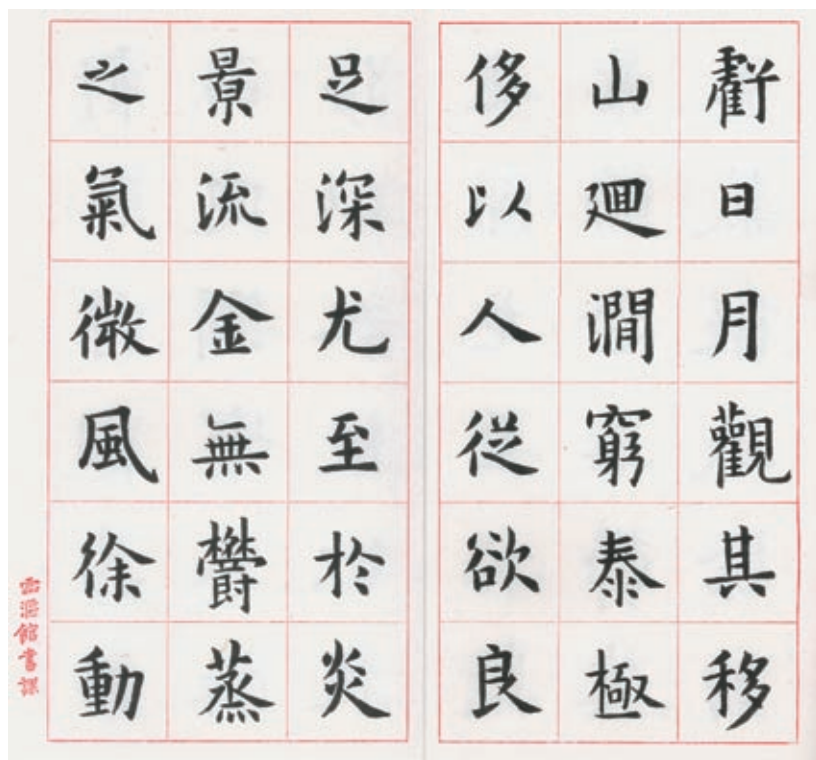 虧日月觀其移
山廻澗窮泰極
侈以人從欲良
足深尤至於炎
景流金無鬱蒸
之氣微風徐動
館書課